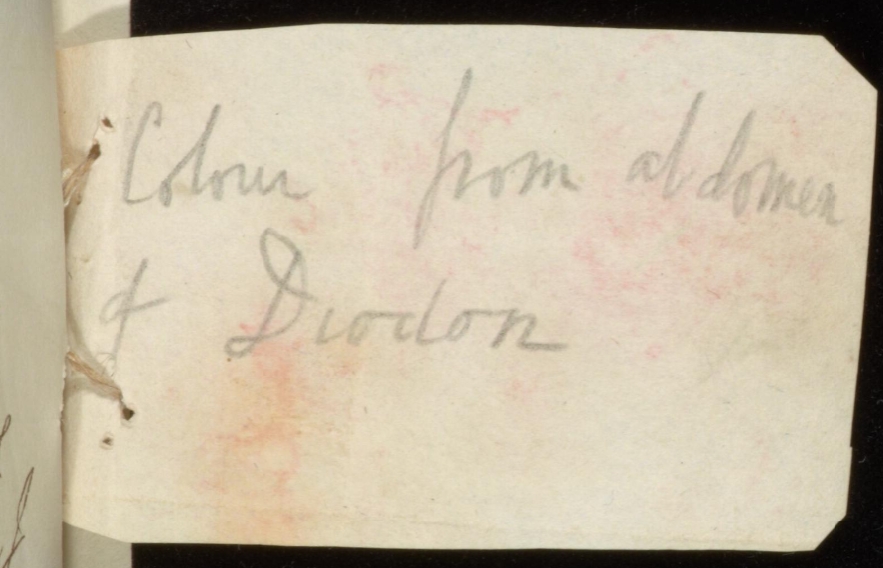 Colour from abdomen
of Diodon